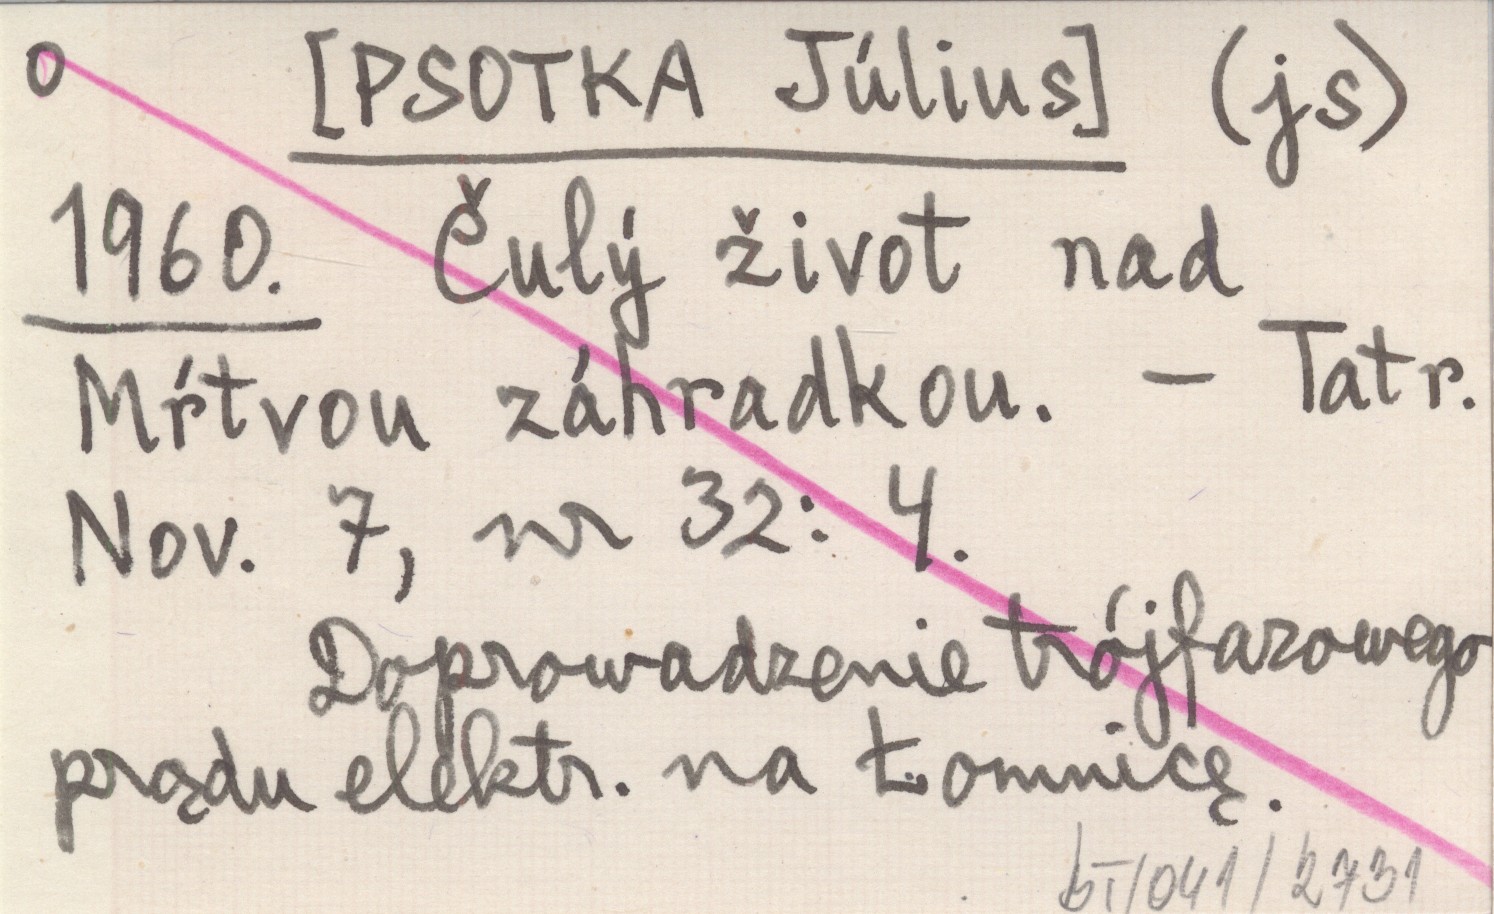 o [PSOTKA Július] (js)
1960. Čulý život nad
Mŕtvou záhradkou. – Tatr.
Nov. 7, nr 32: 4.
Doprowadzenie trójfazowego
prądu elektr. na Łomnicę.
bT/041/2731